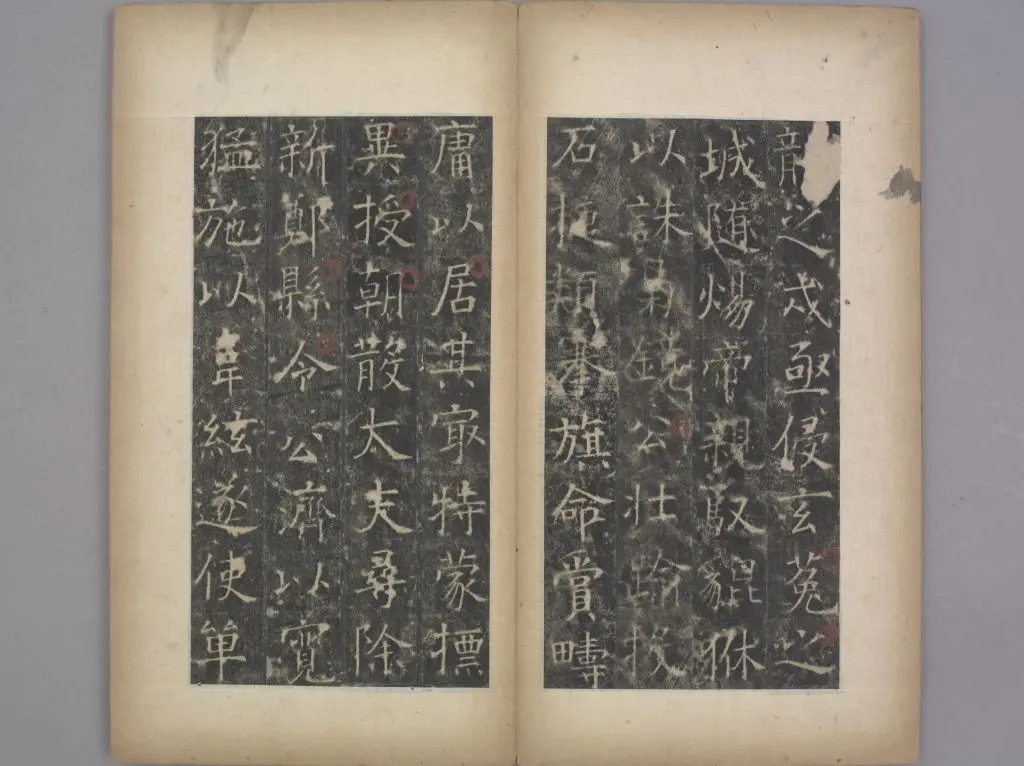 龍之戍亟侵玄菟之
城随煬帝親馭貔貅
以誅梟鏡公壯踰投
石搴旗命賞疇
庸以居其冣特蒙摽
異授朝散大夫尋除
新鄭縣令公濟以寬
猛施以韋絃遂使單